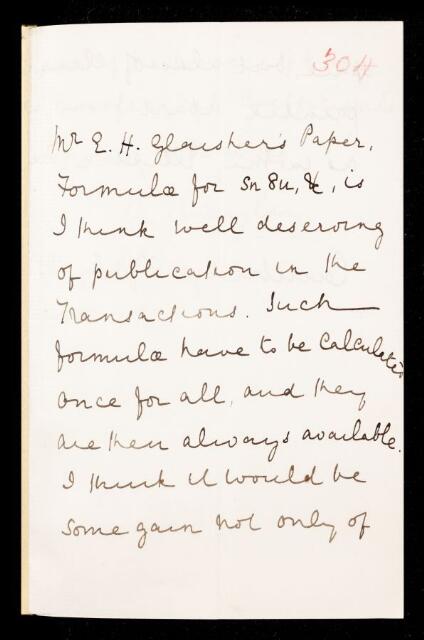 304
Mr E. H. Glaisher's Paper,
Formulæ for sn 8u, &c, is
I think well deserving
of publication in the
Transactions. Such
formulæ have to be calculated
once for all, and they
are then always available.
I think it would be
some gain not only of